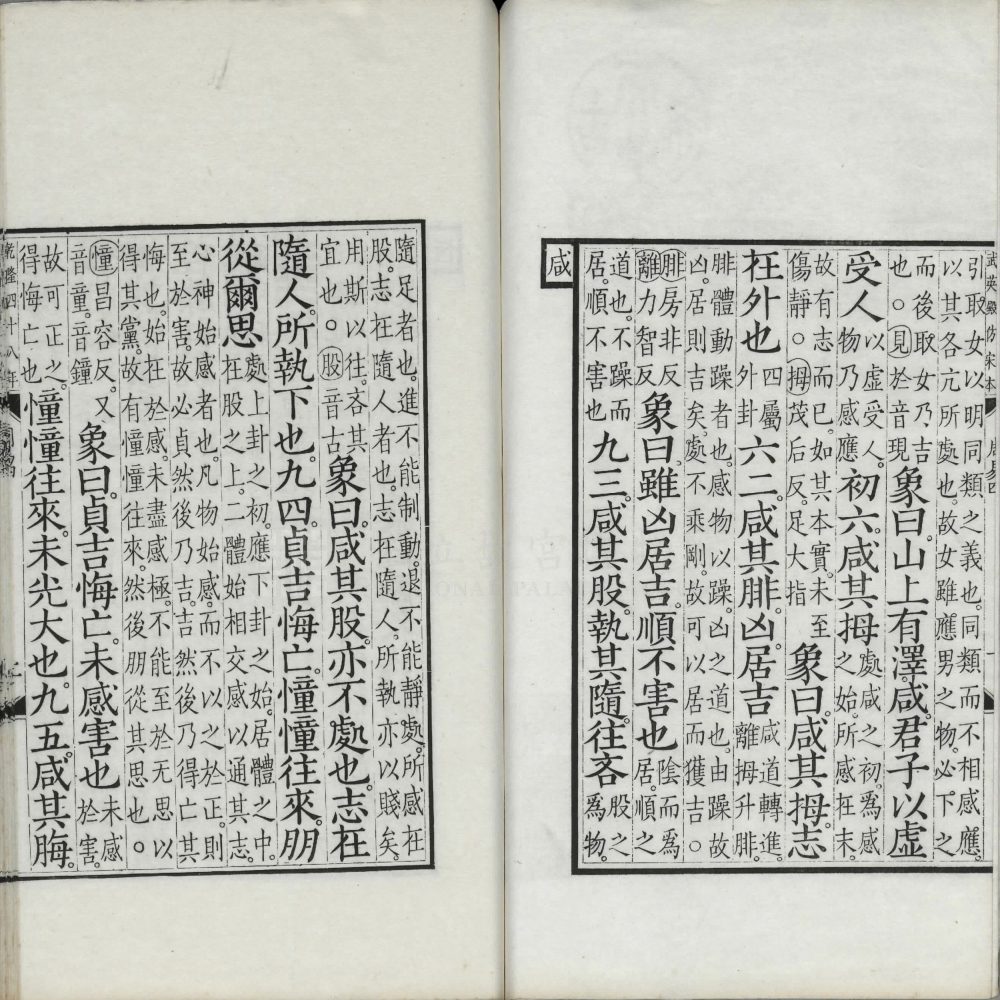 武英殿仿宋本
引取女以明同類之義也。同類而不相感應。
以其各亢所處也。故女雖應男之物。必下之
而後取女乃吉也○見於音現象曰。山上有澤。咸。君子以虛
受人以虛受人。物乃感應。初六。咸其拇。處咸之初。爲感之始。所感在末。
故有志而已。如其本實。未至傷靜○拇茂后反。足大指象曰。咸其拇。志
在外也四屬外卦六二。咸其腓。凶。居吉咸道轉進。離拇升腓
腓體動躁者也。感物以躁。凶之道也。由躁故
凶。居則吉矣。處不乘剛。故可以居而獲吉○
腓房非反離力智反象曰。雖凶居吉。順不害也陰而爲居。順之
道也。不躁而居。順不害也九三。咸其股。執其隨。往吝股之爲物。
咸
隨足者也。進不能制動。退不能靜處。所感在
股。志在隨人者也。志在隨人。所執亦以賤矣。
用斯以往。吝其宜也○股音古象曰。咸其股。亦不處也。志在
隨人。所執下也。九四。貞吉悔亡。憧憧往來。朋
從爾思處上卦之初。應下卦之始。居體之中。在股之上。二體始相交感以通其志。
心神始感者也。凡物始感。而不以之於正。則
至於害。故必貞然後乃吉。吉然後乃得亡其
悔也。始在於感。未盡感極。不能至於无思以
得其黨。故有憧憧往來。然後朋從其思也○
憧昌容反。又音童。音鐘象曰。貞吉悔亡。未感害也未感於害。
故可正之。得悔亡也憧憧往來。未光大也。九五。咸其脢。
乾隆四十八年